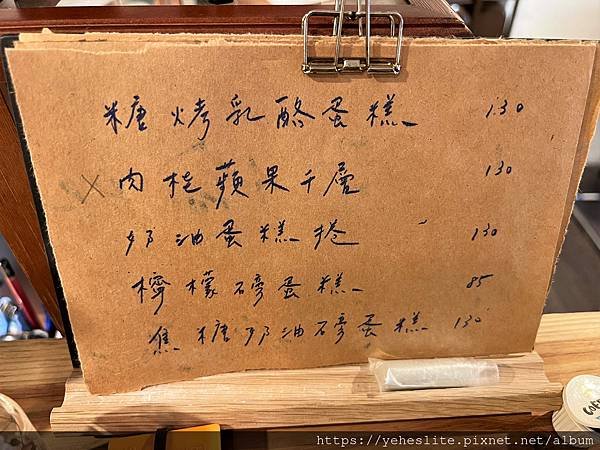 糖烤乳酪蛋糕 130
X 肉桂蘋果千層 130
奶油蛋糕捲 130
檸檬磅蛋糕 85
焦糖奶油磅蛋糕 130
https://yeheslite.pixnet.net/album